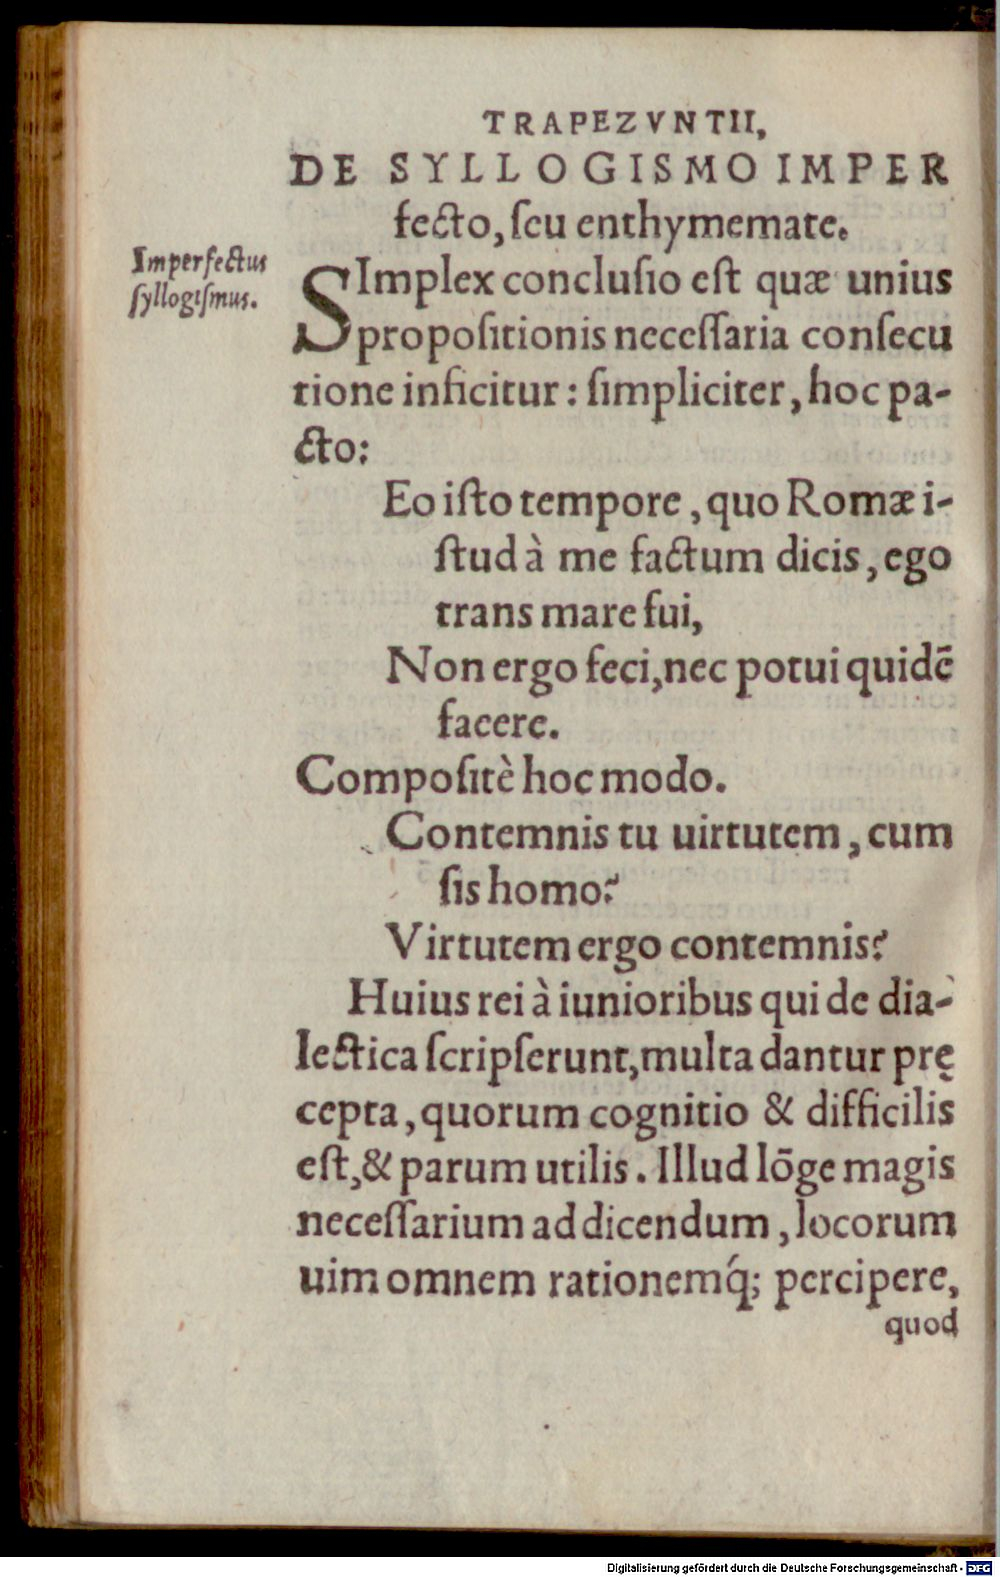 TRAPEZVNTII,
DE SYLLOGISMO IMPER
fecto, ſeu enthymemate.
Imperfectus
ſyllogiſmus.
SImplex concluſio eſt quæ unius
propoſitionis neceſſaria conſecu
tione inficitur: ſimpliciter, hoc pa-
cto:
Eo iſto tempore, quo Romæ i-
ſtud à me factum dicis, ego
trans mare fui,
Non ergo feci, nec potui quidē
facere.
Compoſitè hoc modo.
Contemnis tu uirtutem, cum
ſis homo?
Virtutem ergo contemnis?
Huius rei à iunioribus qui de dia-
lectica ſcripſerunt, multa dantur prę
cepta, quorum cognitio & difficilis
eſt, & parum utilis. Illud lōge magis
neceſſarium ad dicendum, locorum
uim omnem rationemq́; percipere,
quod
Digitalisierung gefördert durch die Deutsche Forschungsgemeinschaft - DFG